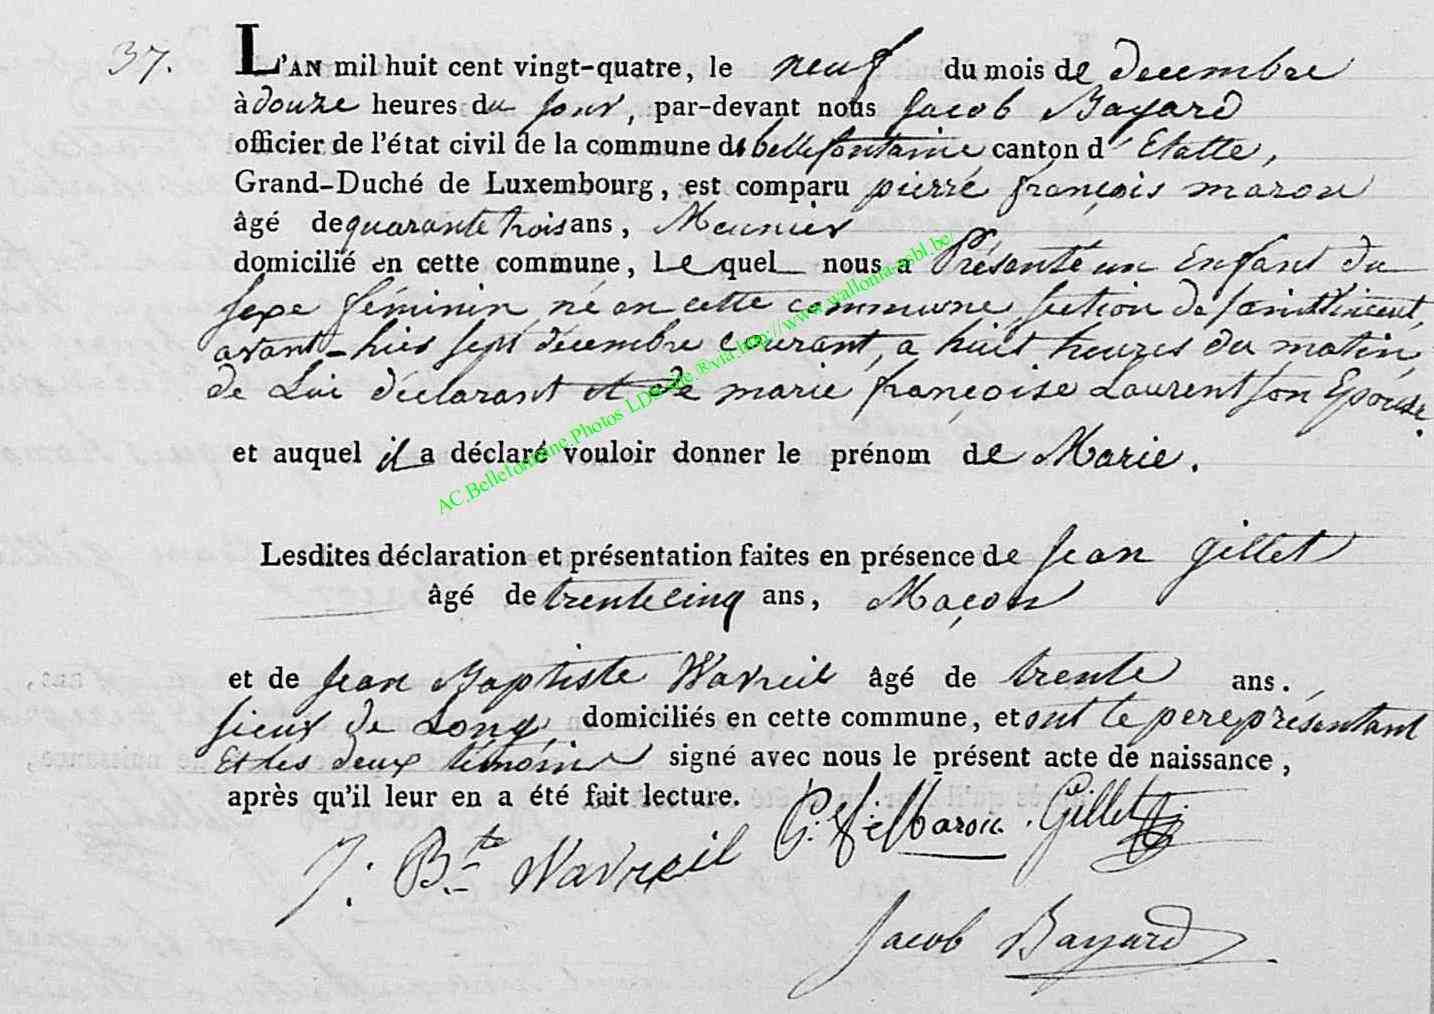 37.
L'AN mil huit cent vingt-quatre, le neuf du mois de decembre
à douze heures du jour, par-devant nous Jacob Bayard
officier de l'état civil de la commune de bellefontaine canton d'Etalle,
Grand-Duché de Luxembourg, est comparu pierre françois marou
âgé de quarante trois ans, Meunier
domicilié en cette commune, Lequel nous a Présenté un Enfant du
sexe féminin, né en cette commune section de saintvincent,
avant-hier sept décembre courant, a huit heures du matin,
de Lui déclarant et de marie françoise Laurent son Epouse.
et auquel il a déclaré vouloir donner le prénom de Marie.
Lesdites déclaration et présentation faites en présence de Jean Gillet
âgé de trente cinq ans, Maçon
et de Jean Baptiste Wavreil âgé de trente ans.
sieur de Long, domiciliés en cette commune, et ont le pere présentant
Et les deux témoins signé avec nous le présent acte de naissance,
après qu'il leur en a été fait lecture.
P: f: Marou. Gillet
J. Bte Wavreil
Jacob Bayard
AC.Bellefontaine Photos LDelville ®via http://www.wallonia-asbl.be/